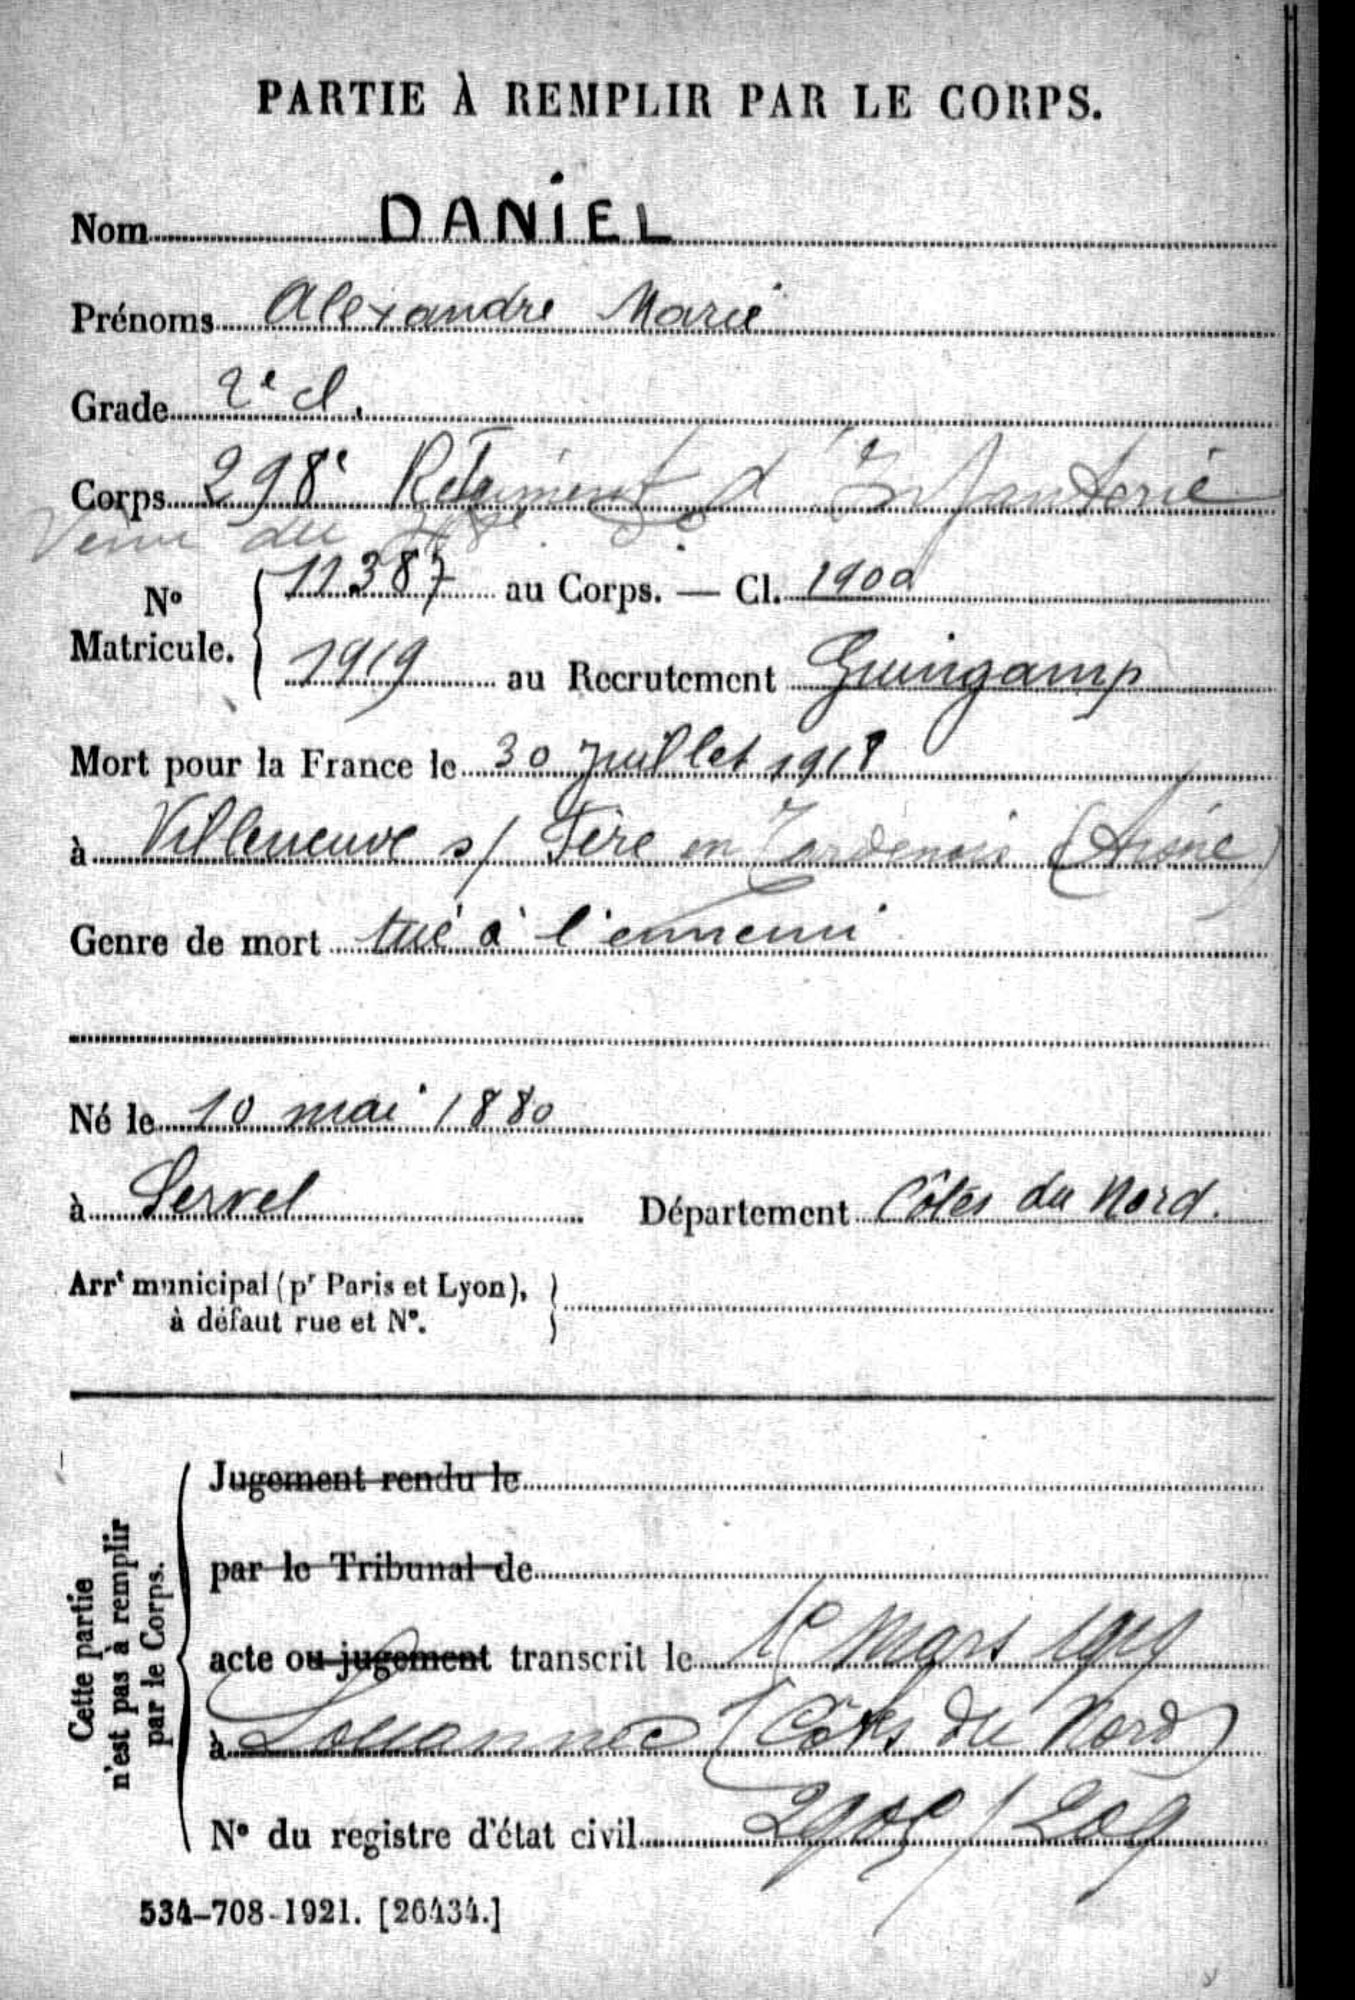 PARTIE À REMPLIR PAR LE CORPS.
Nom DANIEL
Prénoms Alexandre Marie
Grade 2e cl.
Corps 298e Régiment d'Infanterie
Venu du
N° Matricule. 11387 au Corps. — Cl. 1900
1919 au Recrutement Guingamp
Mort pour la France le 30 Juillet 1918
à Villeneuve s/ Fère en Tardenois (Aisne)
Genre de mort tué à l'ennemi
Né le 10 mai 1880
à Servel Département Côtes du Nord.
Arrt municipal (pr Paris et Lyon),
à défaut rue et N°.
Cette partie
n'est pas à remplir
par le Corps.
Jugement rendu le
par le Tribunal de
acte ou jugement transcrit le Mars 1919
à Louannec (Côtes du Nord)
N° du registre d'état civil / 209
534-708-1921. [26434.]